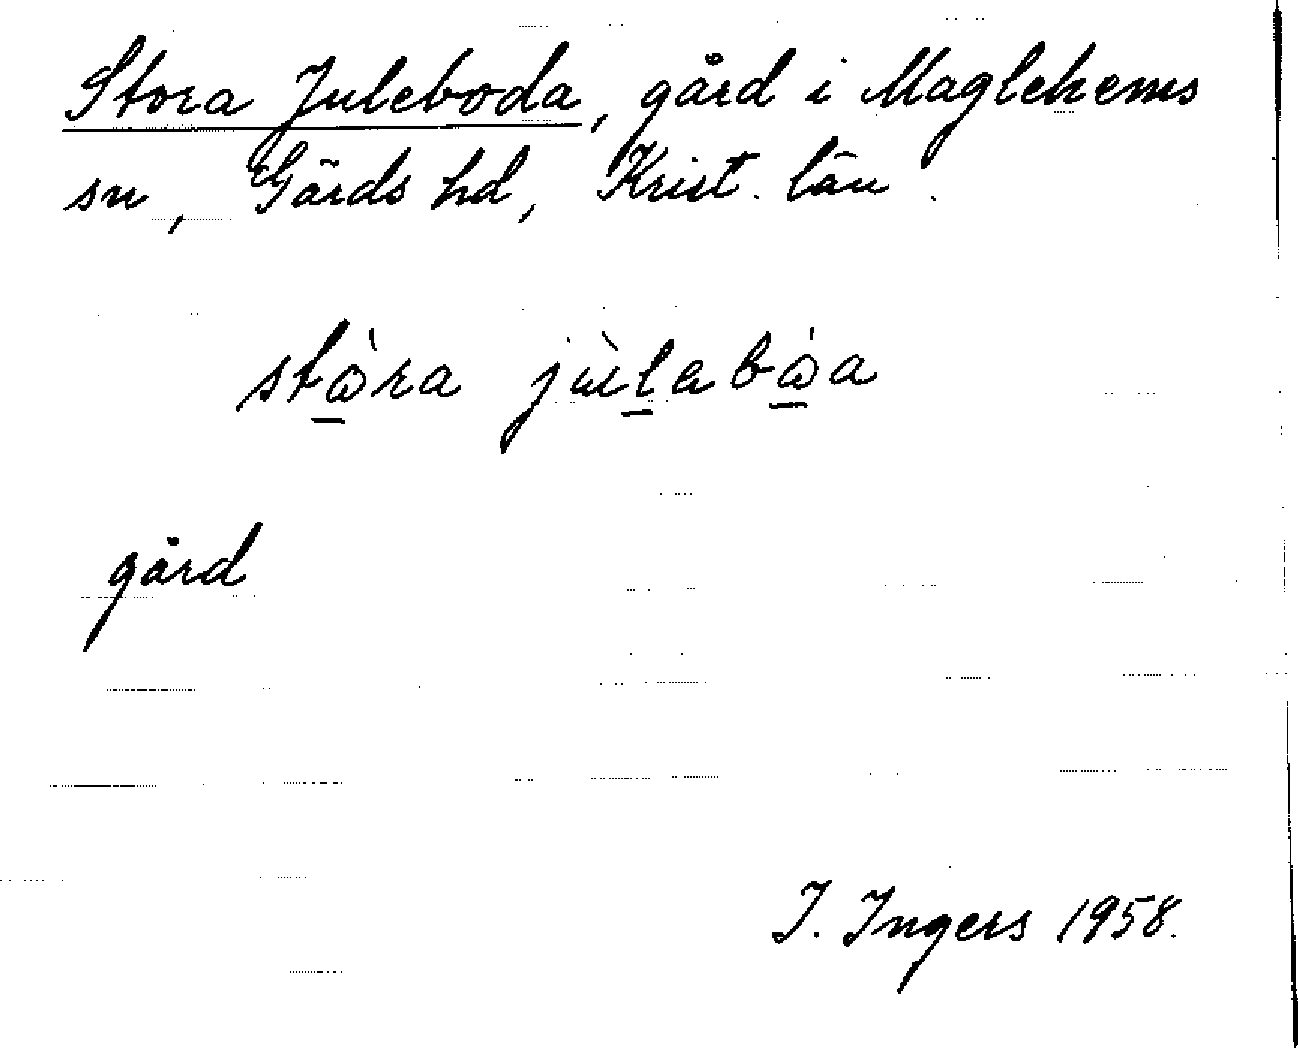 Stora Juleboda, gård i Maglehems
sn, Gärds hd, Krist. län.
stὼra jùlabὼa
gård
I. Ingers 1958.